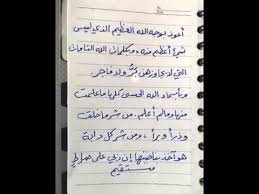 أعوذ بوجه الله العظيم الذي ليس
شيئ أعظم منه، وبكلمات الله التامات
التي لا يجاوزهن بَرٌّ ولا فاجر
وبأسماء الله الحسنى كلها ما علمت
منها وما لم أعلم. من شر ما خلق
وذرأ وبرأ، ومن شر كل دابة
هو آخذ بناصيتها إن ربي على صراط
مستقيم